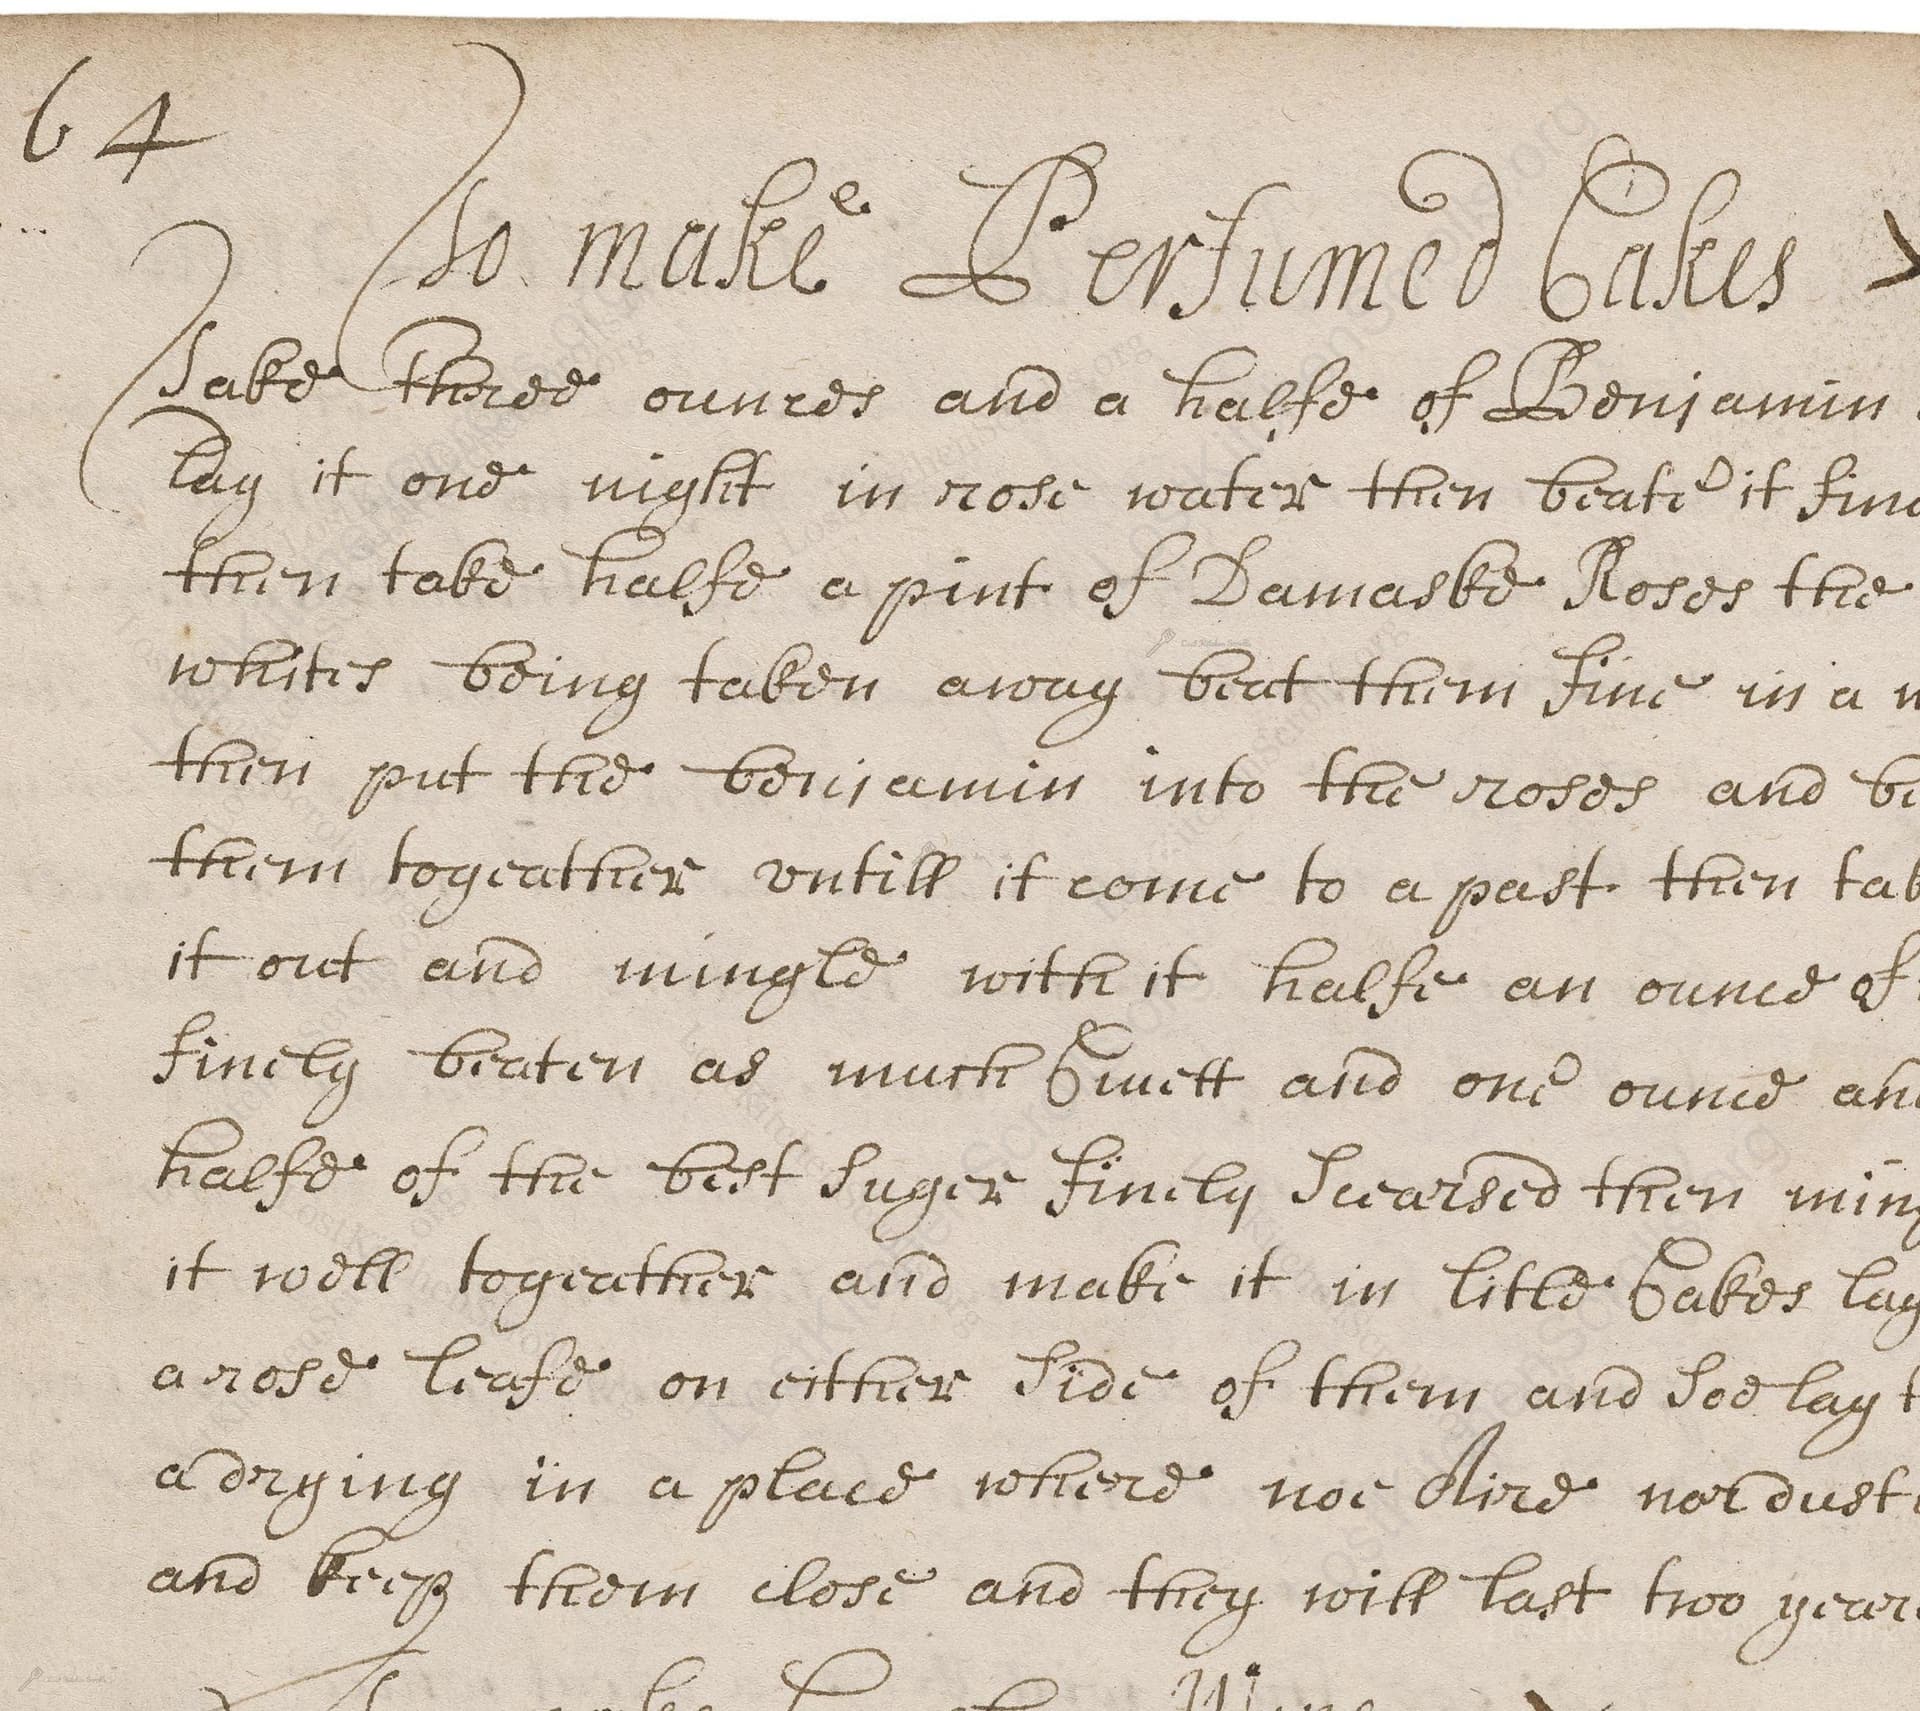 64
To make Perfumed Cakes
Take three ounces and a halfe of Benjamin
lay it one night in rose water then beate it fine
then take halfe a pint of Damaske Roses the
whites being taken away beat them fine in a
then put the benjamin into the roses and
them togeather untill it come to a past then
it out and mingle with it halfe an ounce of
finely beaten as much Civett and one ounce
halfe of the best suger finely scearsed then
it well togeather and make it in litle Cakes lay
a rose leafe on either side of them and soe lay
a drying in a place where noe Aire nor dust
and keep them close and they will last two